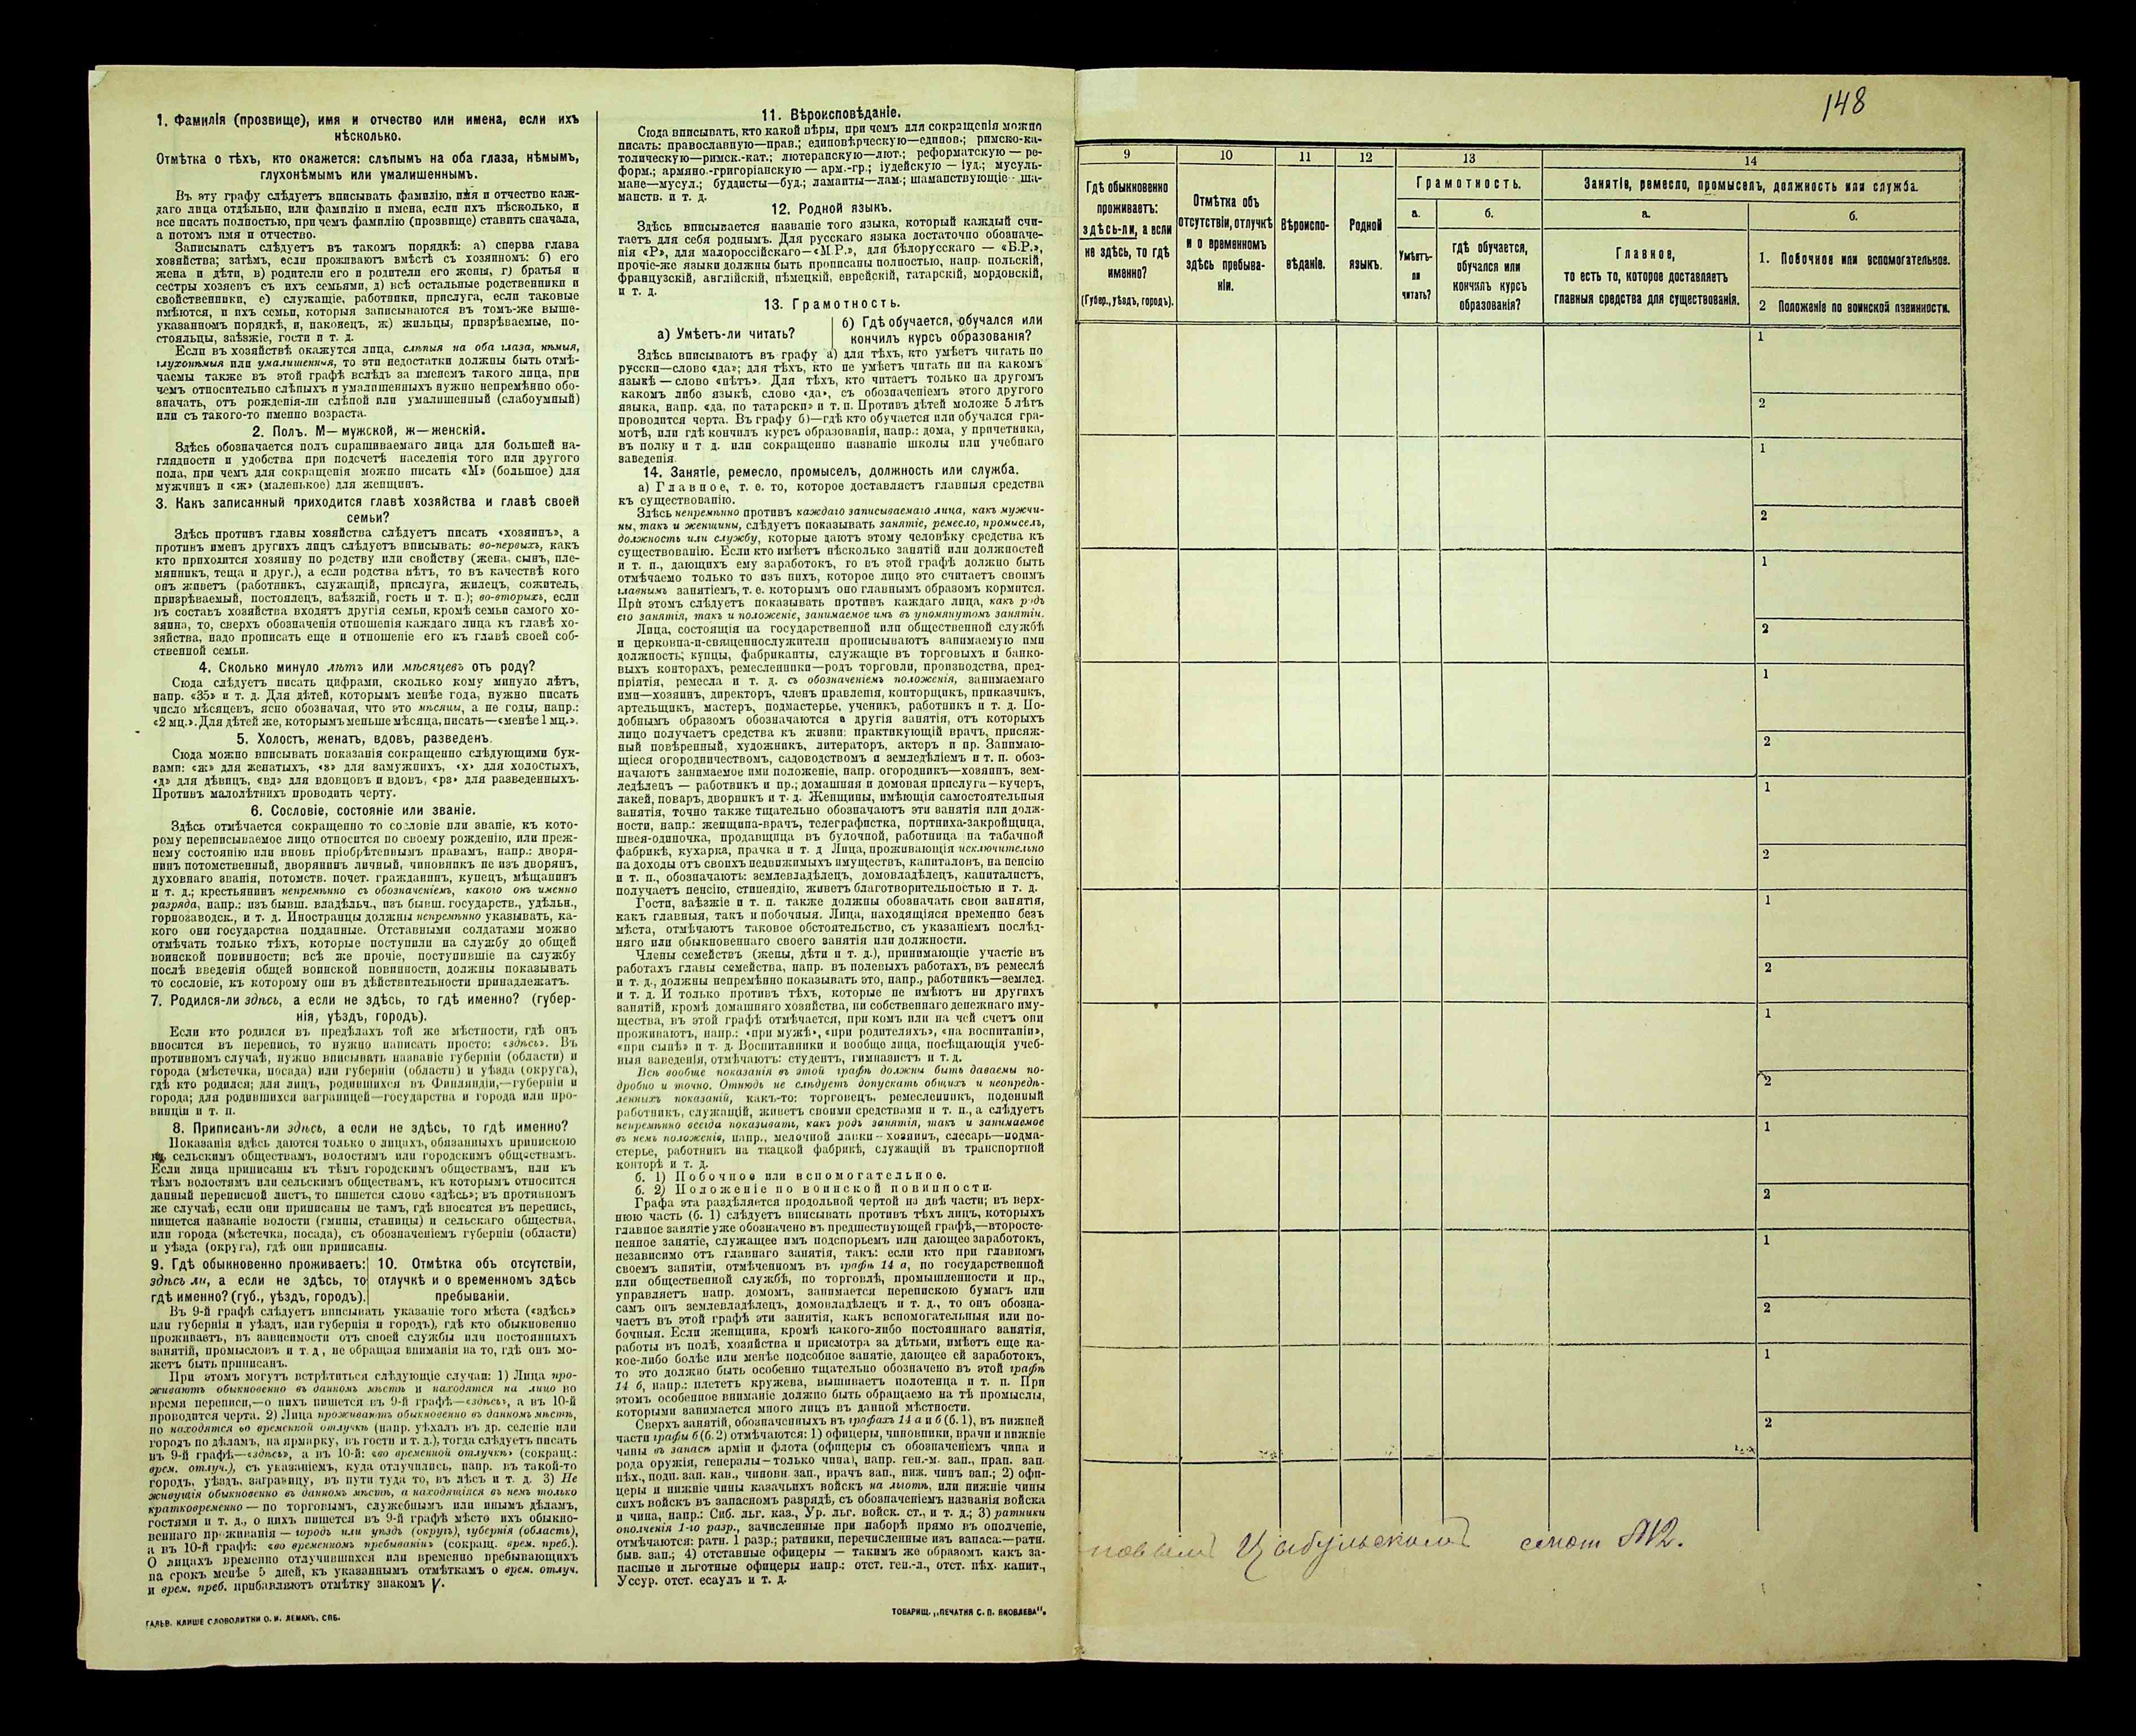 1. Фамилія (прозвище), имя и отчество или имена, если ихъ
нѣсколько.
Отмѣтка о тѣхъ, кто окажется: слѣпымъ на оба глаза, нѣмымъ,
глухонѣмымъ или умалишеннымъ.
Въ эту графу слѣдуетъ вписывать фамилію, имя и отчество каж-
даго лица отдѣльно, или фамилію и имена, если ихъ нѣсколько, и
все писать полностью, при чемъ фамилію (прозвище) ставить сначала,
а потомъ имя и отчество.
Записывать слѣдуетъ въ такомъ порядкѣ: а) сперва глава
хозяйства; затѣмъ, если проживаютъ вмѣстѣ съ хозяиномъ: б) его
жена и дѣти, в) родители его и родители его жены, г) братья и
сестры хозяевъ съ ихъ семьями, д) всѣ остальные родственники и
свойственники, е) служащіе, работники, прислуга, если таковые
имѣются, и ихъ семьи, которыя записываются въ томъ-же выше-
указанномъ порядкѣ, и, наконецъ, ж) жильцы, призрѣваемые, по-
стояльцы, заѣзжіе, гости и т. д.
Если въ хозяйствѣ окажутся лица, слѣпыя на оба глаза, нѣмыя,
глухонѣмыя или умалишенныя, то эти недостатки должны быть отмѣ-
чаемы также въ этой графѣ вслѣдъ за именемъ такого лица, при
чемъ относительно слѣпыхъ и умалишенныхъ нужно непремѣнно обо-
значать, отъ рожденія-ли слѣпой или умалишенный (слабоумный)
или съ такого-то именно возраста.
2. Полъ. М—мужской, ж—женскій.
Здѣсь обозначается полъ спрашиваемаго лица для большей на-
глядности и удобства при подсчетѣ населенія того или другого
пола, при чемъ для сокращенія можно писать «М» (большое) для
мужчинъ и «ж» (маленькое) для женщинъ.
3. Какъ записанный приходится главѣ хозяйства и главѣ своей
семьи?
Здѣсь противъ главы хозяйства слѣдуетъ писать «хозяинъ», а
противъ именъ другихъ лицъ слѣдуетъ вписывать: во-первыхъ, какъ
кто приходится хозяину по родству или свойству (жена, сынъ, пле-
мянникъ, теща и друг.), а если родства нѣтъ, то въ качествѣ кого
онъ живетъ (работникъ, служащій, прислуга, жилецъ, сожитель,
призрѣваемый, постоялецъ, заѣзжій, гость и т. п.); во-вторыхъ, если
въ составъ хозяйства входятъ другія семьи, кромѣ семьи самого хо-
зяина, то, сверхъ обозначенія отношенія каждаго лица къ главѣ хо-
зяйства, надо прописать еще и отношеніе его къ главѣ своей соб-
ственной семьи.
4. Сколько минуло лѣтъ или мѣсяцевъ отъ роду?
Сюда слѣдуетъ писать цифрами, сколько кому минуло лѣтъ,
напр. «35» и т. д. Для дѣтей, которымъ менѣе года, нужно писать
число мѣсяцевъ, ясно обозначая, что это мѣсяцы, а не годы, напр.:
«2 мц.». Для дѣтей же, которымъ меньше мѣсяца, писать—«менѣе 1 мц.».
5. Холостъ, женатъ, вдовъ, разведенъ.
Сюда можно вписывать показанія сокращенно слѣдующими бук-
вами: «ж» для женатыхъ, «з» для замужнихъ, «х» для холостыхъ,
«д» для дѣвицъ, «вд» для вдовцовъ и вдовъ, «рз» для разведенныхъ.
Противъ малолѣтнихъ проводить черту.
6. Сословіе, состояніе или званіе.
Здѣсь отмѣчается сокращенно то сословіе или званіе, къ кото-
рому переписываемое лицо относится по своему рожденію, или преж-
нему состоянію или вновь пріобрѣтеннымъ правамъ, напр.: дворя-
нинъ потомственный, дворянинъ личный, чиновникъ не изъ дворянъ,
духовнаго званія, потомств. почет. гражданинъ, купецъ, мѣщанинъ
и т. д.; крестьянинъ непремѣнно съ обозначеніемъ, какого онъ именно
разряда, напр.: изъ бывш. владѣльч., изъ бывш. государств., удѣльн.,
горнозаводск., и т. д. Иностранцы должны непремѣнно указывать, ка-
кого они государства подданные. Отставными солдатами можно
отмѣчать только тѣхъ, которые поступили на службу до общей
воинской повинности; всѣ же прочіе, поступившіе на службу
послѣ введенія общей воинской повинности, должны показывать
то сословіе, къ которому они въ дѣйствительности принадлежатъ.
7. Родился-ли здѣсь, а если не здѣсь, то гдѣ именно? (губер-
нія, уѣздъ, городъ).
Если кто родился въ предѣлахъ той же мѣстности, гдѣ онъ
вносится въ перепись, то нужно написать просто: «здѣсь». Въ
противномъ случаѣ, нужно вписывать названіе губерніи (области) и
города (мѣстечка, посада) или губерніи (области) и уѣзда (округа),
гдѣ кто родился; для лицъ, родившихся въ Финляндіи,—губерніи и
города; для родившихся заграницей—государства и города или про-
винціи и т. п.
8. Приписанъ-ли здѣсь, а если не здѣсь, то гдѣ именно?
Показанія здѣсь даются только о лицахъ, обязанныхъ припискою
къ сельскимъ обществамъ, волостямъ или городскимъ обществамъ.
Если лица приписаны къ тѣмъ городскимъ обществамъ, или къ
тѣмъ волостямъ или сельскимъ обществамъ, къ которымъ относится
данный переписной листъ, то пишется слово «здѣсь»; въ противномъ
же случаѣ, если они приписаны не тамъ, гдѣ вносятся въ перепись,
пишется названіе волости (гмины, станицы) и сельскаго общества,
или города (мѣстечка, посада), съ обозначеніемъ губерніи (области)
и уѣзда (округа), гдѣ они приписаны.
9. Гдѣ обыкновенно проживаетъ:
здѣсь ли, а если не здѣсь, то
гдѣ именно? (губ., уѣздъ, городъ).
10. Отмѣтка объ отсутствіи,
отлучкѣ и о временномъ здѣсь
пребываніи.
Въ 9-й графѣ слѣдуетъ вписывать указаніе того мѣста («здѣсь»
или губернія и уѣздъ, или губернія и городъ), гдѣ кто обыкновенно
проживаетъ, въ зависимости отъ своей службы или постоянныхъ
занятій, промысловъ и т. д, не обращая вниманія на то, гдѣ онъ мо-
жетъ быть приписанъ.
При этомъ могутъ встрѣтиться слѣдующіе случаи: 1) Лица про-
живаютъ обыкновенно въ данномъ мѣстѣ и находятся на лицо во
время переписи,—о нихъ пишется въ 9-й графѣ—«здѣсь», а въ 10-й
проводится черта. 2) Лица проживаютъ обыкновенно въ данномъ мѣстѣ,
но находятся во временной отлучкѣ (напр. уѣхалъ въ др. селеніе или
городъ по дѣламъ, на ярмарку, въ гости и т. д.), тогда слѣдуетъ писать
въ 9-й графѣ—«здѣсь», а въ 10-й: «во временной отлучкѣ» (сокращ.:
врем. отлуч.), съ указаніемъ, куда отлучились, напр. въ такой-то
городъ, уѣздъ, заграницу, въ пути туда то, въ лѣсъ и т. д. 3) Не
живущія обыкновенно въ данномъ мѣстѣ, а находящіяся въ немъ только
кратковременно — по торговымъ, служебнымъ или инымъ дѣламъ,
гостями и т. д., о нихъ пишется въ 9-й графѣ мѣсто ихъ обыкно-
веннаго проживанія — городъ или уѣздъ (округъ), губернія (область),
а въ 10-й графѣ: «во временномъ пребываніи» (сокращ. врем. преб.).
О лицахъ временно отлучившихся или временно пребывающихъ
на срокъ менѣе 5 дней, къ указаннымъ отмѣткамъ о врем. отлуч.
и врем. преб. прибавляютъ отмѣтку знакомъ V.
ГАЛЬВ. КЛИШЕ СЛОВОЛИТНИ О. И. ЛЕМАНЪ, СПБ.
11. Вѣроисповѣданіе.
Сюда вписывать, кто какой вѣры, при чемъ для сокращенія можно
писать: православную—прав.; единовѣрческую—единов.; римско-ка-
толическую—римск.-кат.; лютеранскую—лют.; реформатскую — ре-
форм.; армяно.-григоріанскую — арм.-гр.; іудейскую — іуд.; мусуль-
мане—мусул.; буддисты—буд.; ламаиты—лам.; шаманствующіе - ша-
манств. и т. д.
12. Родной языкъ.
Здѣсь вписывается названіе того языка, который каждый счи-
таетъ для себя роднымъ. Для русскаго языка достаточно обозначе-
нія «Р», для малороссійскаго—«М.Р.», для бѣлорусскаго — «Б.Р.»,
прочіе-же языки должны быть прописаны полностью, напр. польскій,
французскій, англійскій, нѣмецкій, еврейскій, татарскій, мордовскій,
и т. д.
13. Грамотность.
а) Умѣетъ-ли читать?
б) Гдѣ обучается, обучался или
кончилъ курсъ образованія?
Здѣсь вписываютъ въ графу а) для тѣхъ, кто умѣетъ читать по
русски—слово «да»; для тѣхъ, кто не умѣетъ читать ни на какомъ
языкѣ — слово «нѣтъ». Для тѣхъ, кто читаетъ только на другомъ
какомъ либо языкѣ, слово «да», съ обозначеніемъ этого другого
языка, напр. «да, по татарски» и т. п. Противъ дѣтей моложе 5 лѣтъ
проводится черта. Въ графу б)—гдѣ кто обучается или обучался гра-
мотѣ, или гдѣ кончилъ курсъ образованія, напр.: дома, у причетника,
въ полку и т д. или сокращенно названіе школы или учебнаго
заведенія.
14. Занятіе, ремесло, промыселъ, должность или служба.
а) Главное, т. е. то, которое доставляетъ главныя средства
къ существованію.
Здѣсь непремѣнно противъ каждаго записываемаго лица, какъ мужчи-
ны, такъ и женщины, слѣдуетъ показывать занятіе, ремесло, промыселъ,
должность или службу, которые даютъ этому человѣку средства къ
существованію. Если кто имѣетъ нѣсколько занятій или должностей
и т. п., дающихъ ему заработокъ, то въ этой графѣ должно быть
отмѣчаемо только то изъ нихъ, которое лицо это считаетъ своимъ
главнымъ занятіемъ, т. е. которымъ оно главнымъ образомъ кормится.
При этомъ слѣдуетъ показывать противъ каждаго лица, какъ родъ
его занятія, такъ и положеніе, занимаемое имъ въ упомянутомъ занятіи.
Лица, состоящія на государственной или общественной службѣ
и церковно-и-священнослужители прописываютъ занимаемую ими
должность; купцы, фабриканты, служащіе въ торговыхъ и банко-
выхъ конторахъ, ремесленники—родъ торговли, производства, пред-
пріятія, ремесла и т. д. съ обозначеніемъ положенія, занимаемаго
ими—хозяинъ, директоръ, членъ правленія, конторщикъ, приказчикъ,
артельщикъ, мастеръ, подмастерье, ученикъ, работникъ и т. д. По-
добнымъ образомъ обозначаются и другія занятія, отъ которыхъ
лицо получаетъ средства къ жизни: практикующій врачъ, присяж-
ный повѣренный, художникъ, литераторъ, актеръ и пр. Занимаю-
щіеся огородничествомъ, садоводствомъ и земледѣліемъ и т. п. обоз-
начаютъ занимаемое ими положеніе, напр. огородникъ—хозяинъ, зем-
ледѣлецъ — работникъ и пр.; домашняя и домовая прислуга—кучеръ,
лакей, поваръ, дворникъ и т. д. Женщины, имѣющія самостоятельныя
занятія, точно также тщательно обозначаютъ эти занятія или долж-
ности, напр.: женщина-врачъ, телеграфистка, портниха-закройщица,
швея-одиночка, продавщица въ булочной, работница на табачной
фабрикѣ, кухарка, прачка и т. д Лица, проживающія исключительно
на доходы отъ своихъ недвижимыхъ имуществъ, капиталовъ, на пенсію
и т. п., обозначаютъ: землевладѣлецъ, домовладѣлецъ, капиталистъ,
получаетъ пенсію, стипендію, живетъ благотворительностью и т. д.
Гости, заѣзжіе и т. п. также должны обозначать свои занятія,
какъ главныя, такъ и побочныя. Лица, находящіяся временно безъ
мѣста, отмѣчаютъ таковое обстоятельство, съ указаніемъ послѣд-
няго или обыкновеннаго своего занятія или должности.
Члены семействъ (жены, дѣти и т. д.), принимающіе участіе въ
работахъ главы семейства, напр. въ полевыхъ работахъ, въ ремеслѣ
и т. д., должны непремѣнно показывать это, напр., работникъ—землед.
и т. д. И только противъ тѣхъ, которые не имѣютъ ни другихъ
занятій, кромѣ домашняго хозяйства, ни собственнаго денежнаго иму-
щества, въ этой графѣ отмѣчается, при комъ или на чей счетъ они
проживаютъ, напр.: «при мужѣ», «при родителяхъ», «на воспитаніи»,
«при сынѣ» и т. д. Воспитанники и вообще лица, посѣщающія учеб-
ныя заведенія, отмѣчаютъ: студентъ, гимназистъ и т. д.
Всѣ вообще показанія въ этой графѣ должны быть даваемы по-
дробно и точно. Отнюдь не слѣдуетъ допускать общихъ и неопредѣ-
ленныхъ показаній, какъ-то: торговецъ, ремесленникъ, поденный
работникъ, служащій, живетъ своими средствами и т. п., а слѣдуетъ
непремѣнно всегда показывать, какъ родъ занятія, такъ и занимаемое
въ немъ положеніе, напр., мелочной лавки—хозяинъ, слесарь—подма-
стерье, работникъ на ткацкой фабрикѣ, служащій въ транспортной
конторѣ и т. д.
б. 1) Побочное или вспомогательное.
б. 2) Положеніе по воинской повинности.
Графа эта раздѣляется продольной чертой на двѣ части; въ верх-
нюю часть (б. 1) слѣдуетъ вписывать противъ тѣхъ лицъ, которыхъ
главное занятіе уже обозначено въ предшествующей графѣ,—второсте-
пенное занятіе, служащее имъ подспорьемъ или дающее заработокъ,
независимо отъ главнаго занятія, такъ: если кто при главномъ
своемъ занятіи, отмѣченномъ въ графѣ 14 а, по государственной
или общественной службѣ, по торговлѣ, промышленности и пр.,
управляетъ напр. домомъ, занимается перепискою бумагъ или
самъ онъ землевладѣлецъ, домовладѣлецъ и т. д., то онъ обозна-
чаетъ въ этой графѣ эти занятія, какъ вспомогательныя или по-
бочныя. Если женщина, кромѣ какого-либо постояннаго занятія,
работы въ полѣ, хозяйства и присмотра за дѣтьми, имѣетъ еще ка-
кое-либо болѣе или менѣе подсобное занятіе, дающее ей заработокъ,
то это должно быть особенно тщательно обозначено въ этой графѣ
14 б, напр.: плететъ кружева, вышиваетъ полотенца и т. п. При
этомъ особенное вниманіе должно быть обращаемо на тѣ промыслы,
которыми занимается много лицъ въ данной мѣстности.
Сверхъ занятій, обозначенныхъ въ графахъ 14 а и б (б. 1), въ нижней
части графы б (б. 2) отмѣчаются: 1) офицеры, чиновники, врачи и нижніе
чины въ запасѣ арміи и флота (офицеры съ обозначеніемъ чина и
рода оружія, генералы—только чина), напр. ген.-м. зап., прап. зап.
пѣх., подп. зап. кав., чиновн. зап., врачъ зап., ниж. чинъ зап.; 2) офи-
церы и нижніе чины казачьихъ войскъ на льготѣ, или нижніе чины
сихъ войскъ въ запасномъ разрядѣ, съ обозначеніемъ названія войска
и чина, напр.: Сиб. льг. каз., Ур. льг. войск. ст., и т. д.; 3) ратники
ополченія 1-го разр., зачисленные при наборѣ прямо въ ополченіе,
отмѣчаются: ратн. 1 разр.; ратники, перечисленные изъ запаса—ратн.
быв. зап.; 4) отставные офицеры — такимъ же образомъ какъ за-
пасные и льготные офицеры напр.: отст. ген.-л., отст. пѣх. капит.,
Уссур. отст. есаулъ и т. д.
ТОВАРИЩ. „ПЕЧАТНЯ С. П. ЯКОВЛЕВА".
148
9
10
11
12
13
14
Гдѣ обыкновенно
проживаетъ:
здѣсь-ли, а если
не здѣсь, то гдѣ
именно?
(Губер., уѣздъ, городъ).
Отмѣтка объ
отсутствіи, отлучкѣ
и о временномъ
здѣсь пребыва-
ніи.
Вѣроиспо-
вѣданіе.
Родной
языкъ.
Грамотность.
а.
Умѣетъ-
ли
читать?
б.
гдѣ обучается,
обучался или
кончилъ курсъ
образованія?
Занятіе, ремесло, промыселъ, должность или служба.
а.
Главное,
то есть то, которое доставляетъ
главныя средства для существованія.
б.
1. Побочное или вспомогательное.
2 Положеніе по воинской повинности.
1
2
1
2
1
2
1
2
1
2
1
2
1
2
1
2
1
2
1
2